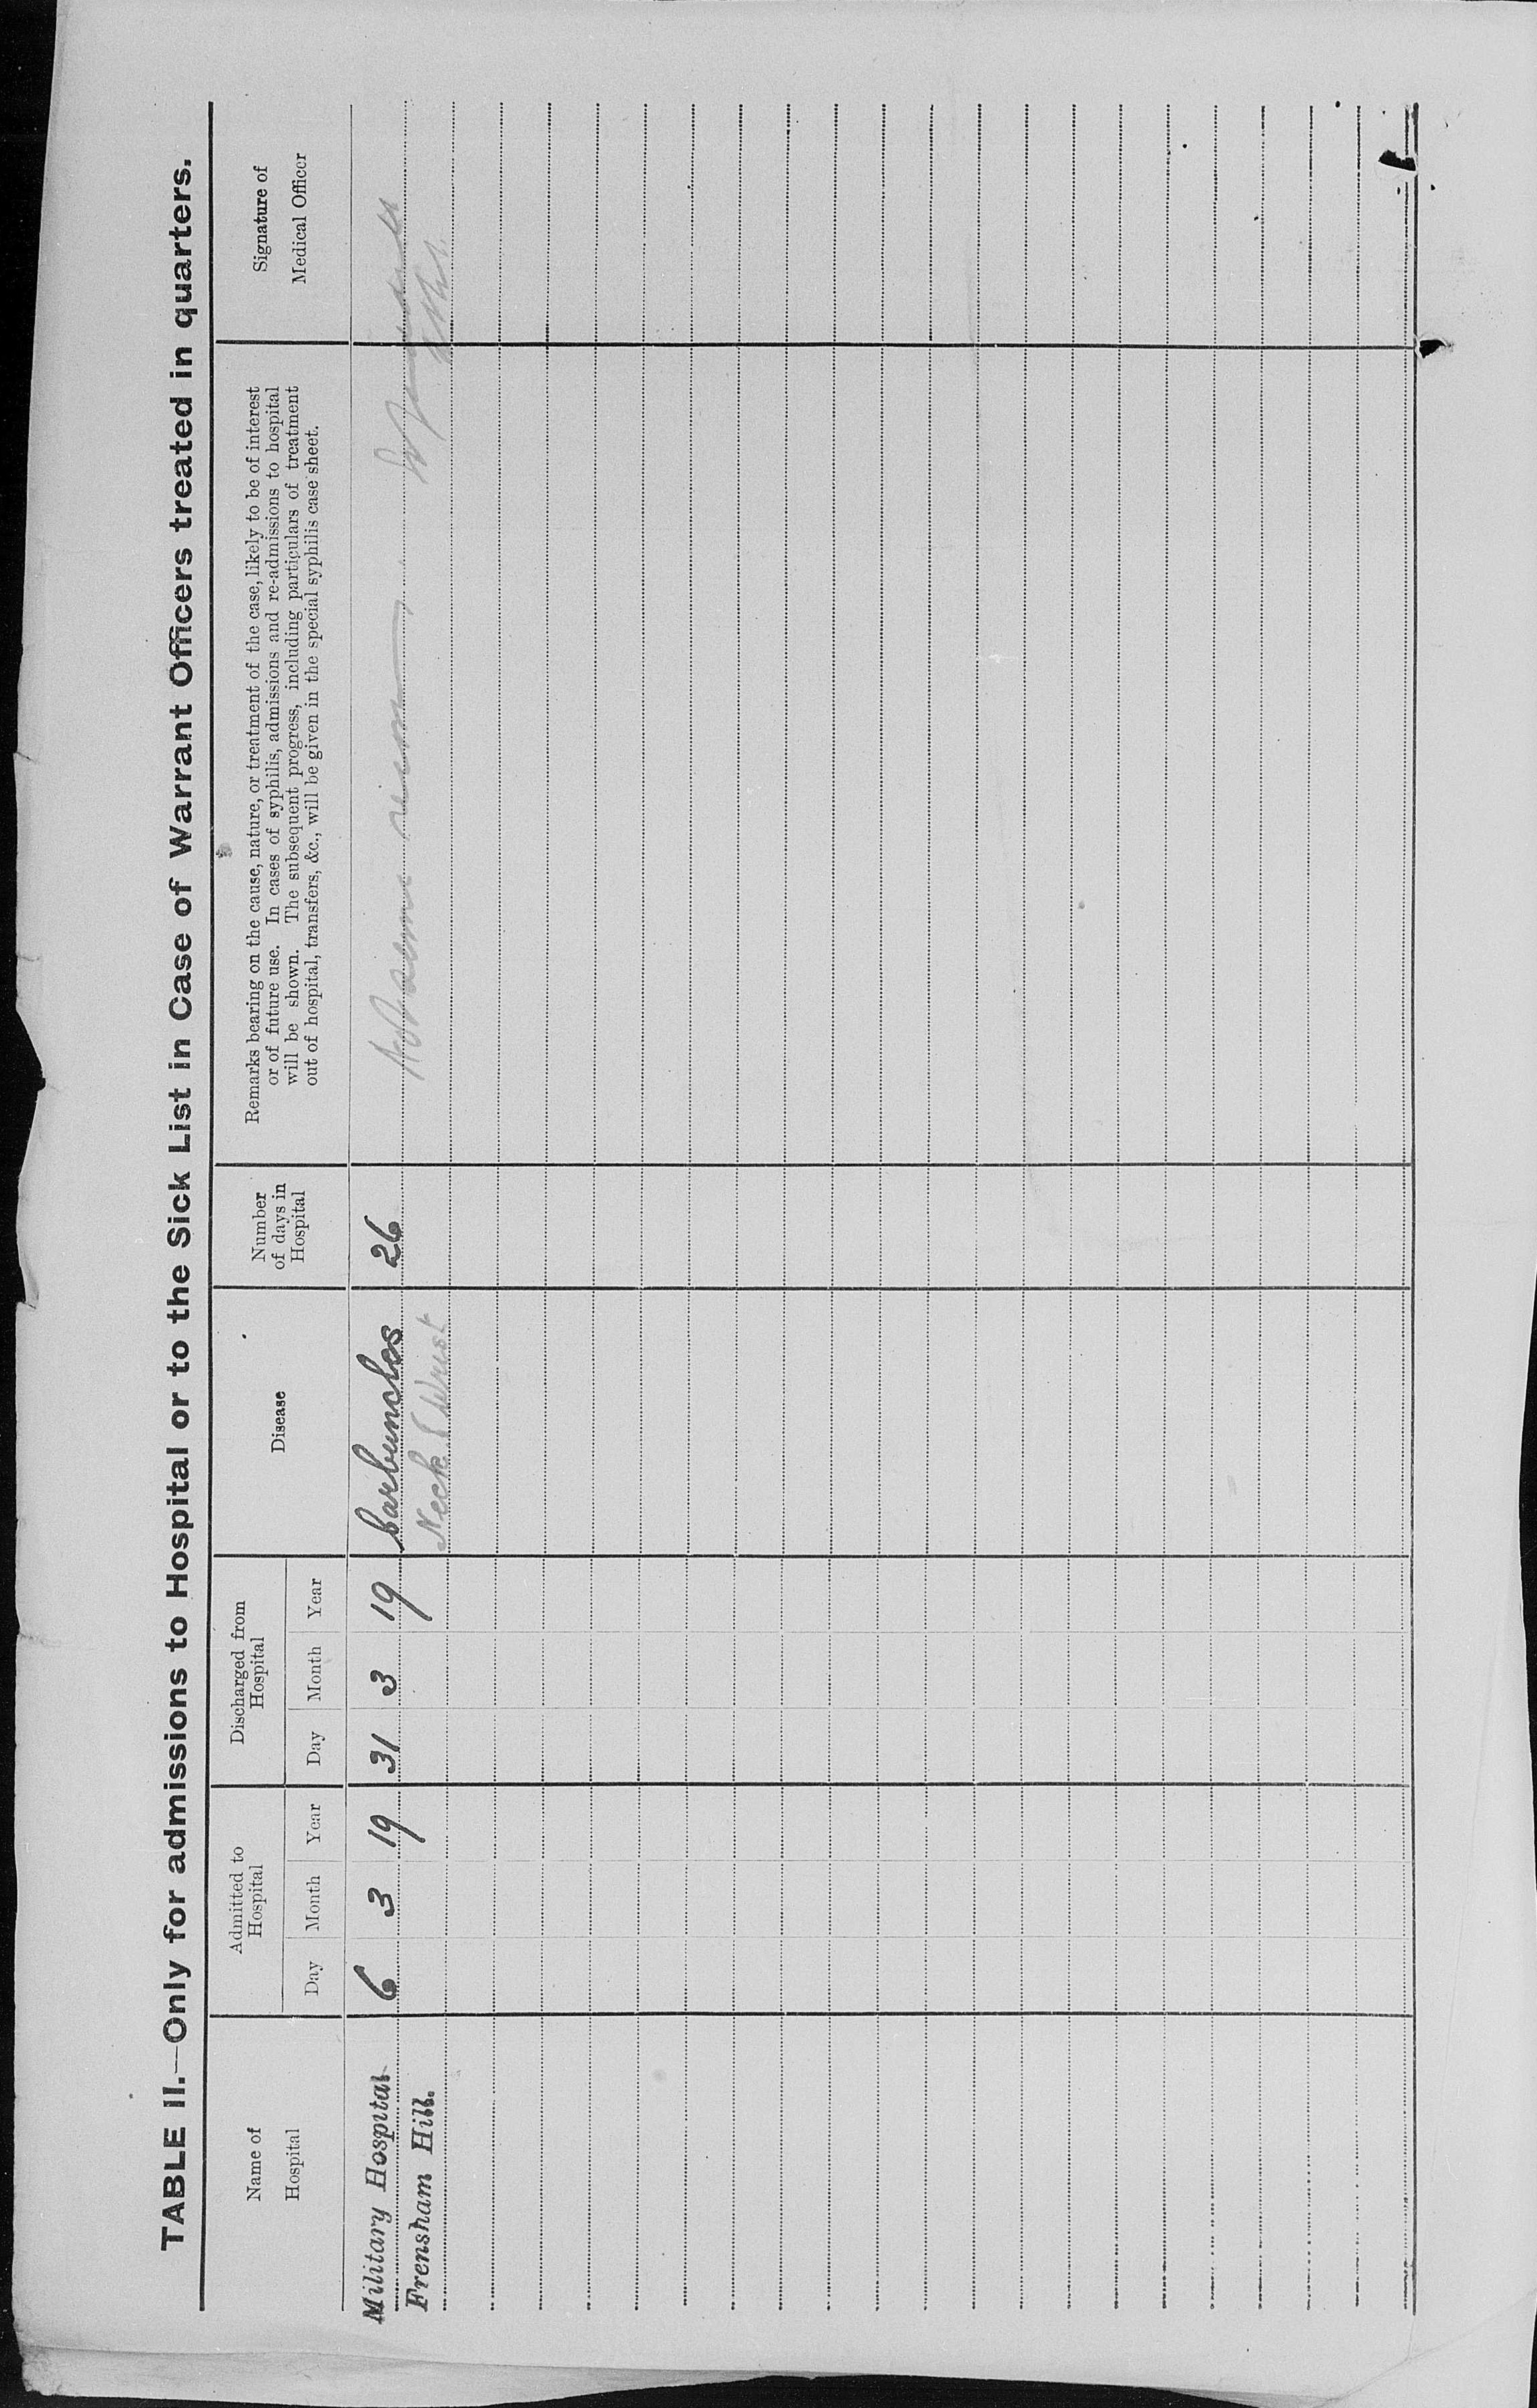 TABLE II.—Only for admissions to Hospital or to the Sick List in Case of Warrant Officers treated in quarters.
Name of
Hospital
Admitted to
Hospital
Day Month Year
Discharged from
Hospital
Day Month Year
Disease
Number
of days in
Hospital
Remarks bearing on the cause, nature, or treatment of the case, likely to be of interest
or of future use. In cases of syphilis, admissions and re-admissions to hospital
will be shown. The subsequent progress, including particulars of treatment
out of hospital, transfers, &c., will be given in the special syphilis case sheet.
Signature of
Medical Officer
Military Hospital 6 3 19 31 3 19 Carbuncles 26
Frensham Hill. Neck & Wrist